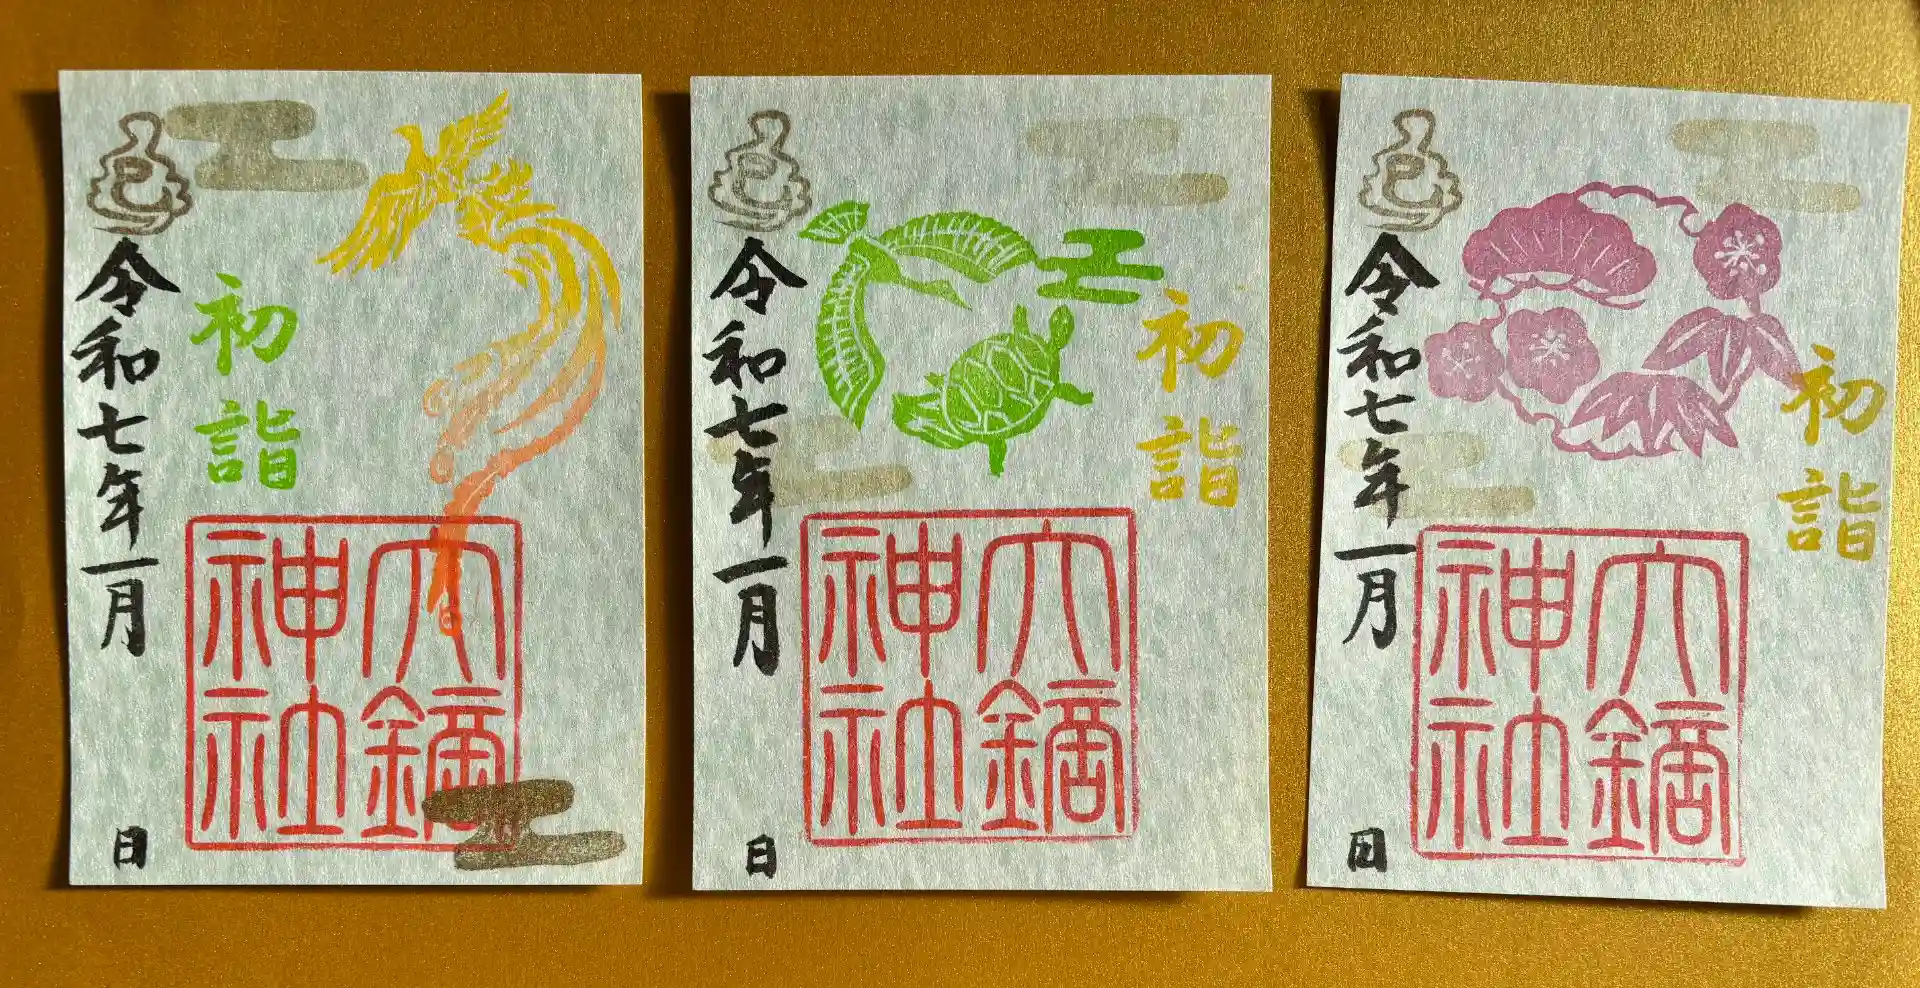 巳
令和七年一月
日
初詣
大鏑
神社
巳
令和七年一月
日
初詣
大鏑
神社
巳
令和七年一月
日
初詣
大鏑
神社